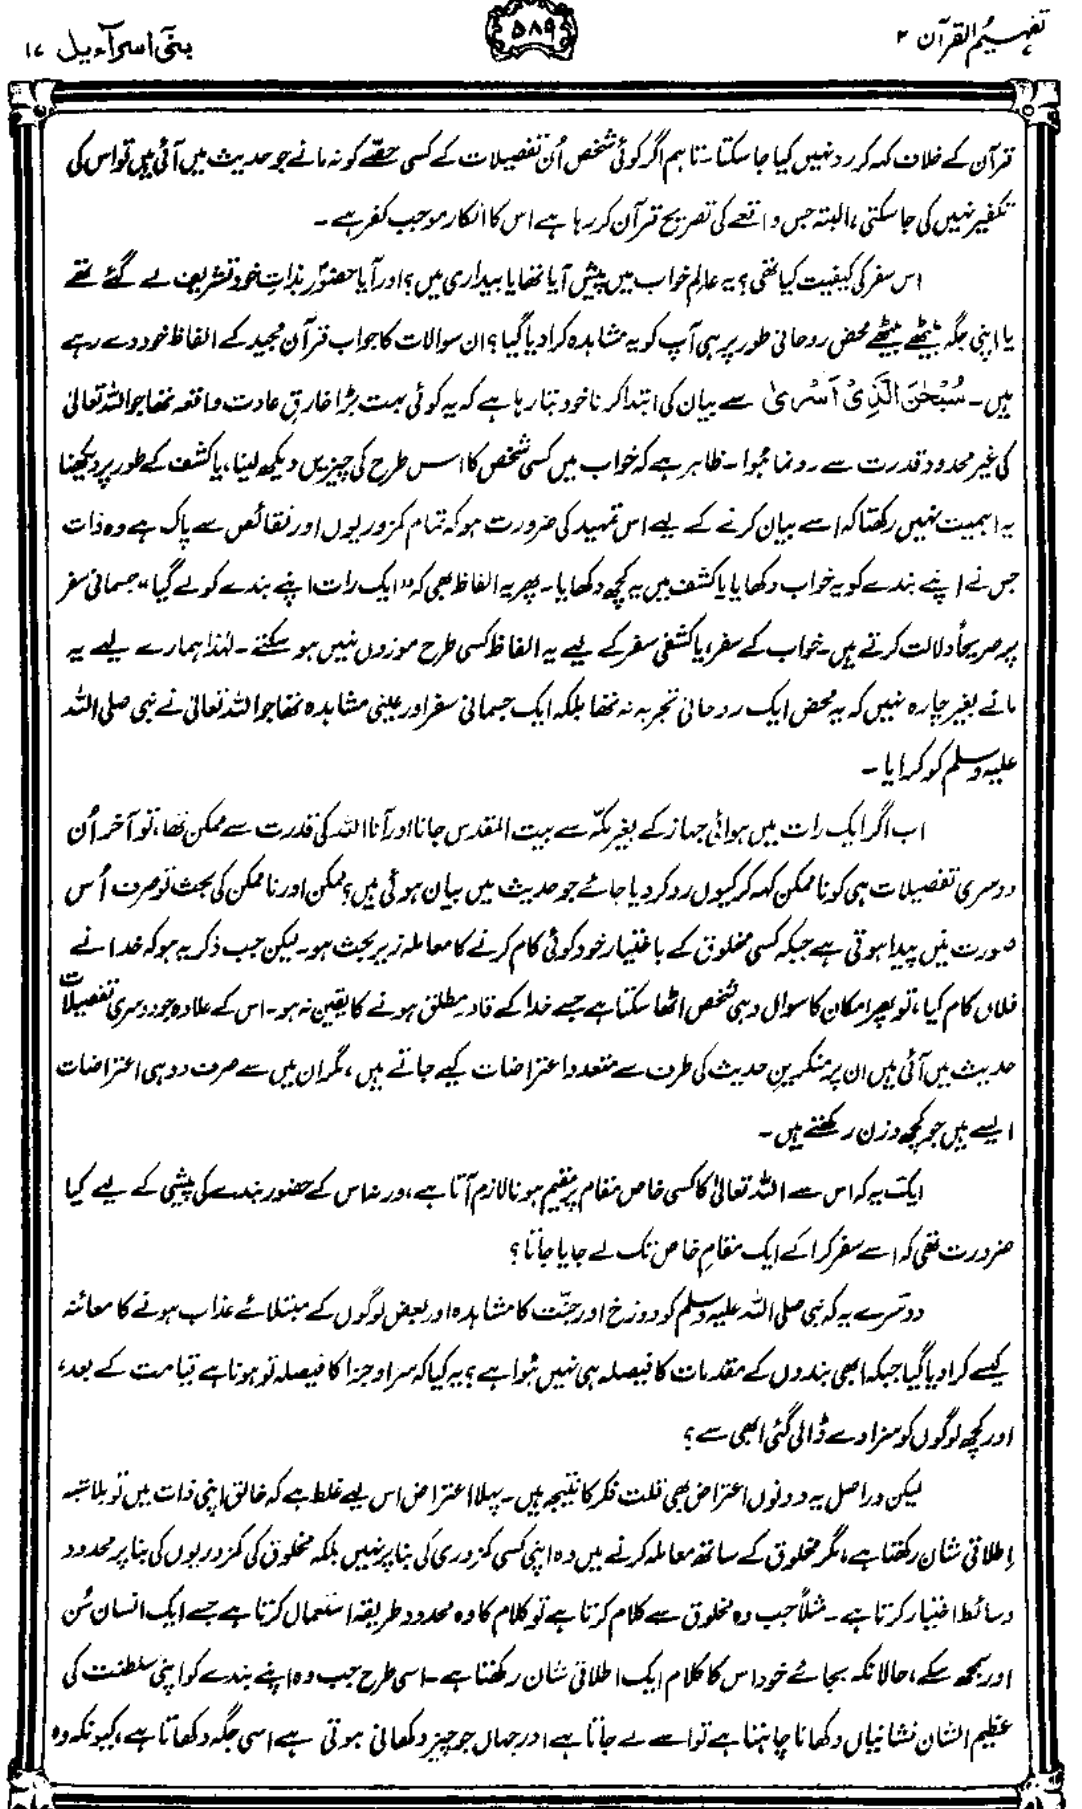 تفہیم القرآن ۲
۵۸۹
بنی اسرآءیل ۱۷
قرآن کے خلاف کہہ کر رد نہیں کیا جا سکتا۔ تاہم اگر کوئی شخص اُن تفصیلات کے کسی حصّے کو نہ مانے جو حدیث میں آئی ہیں تو اس کی
تکفیر نہیں کی جا سکتی، البتہ جس واقعے کی تصریح قرآن کر رہا ہے اس کا انکار موجب کفر ہے۔
اس سفر کی کیفیت کیا تھی؟ یہ عالم خواب میں پیش آیا تھا یا بیداری میں؟ اور آیا حضورؐ بذاتِ خود تشریف لے گئے تھے
یا اپنی جگہ بیٹھے بیٹھے محض روحانی طور پر ہی آپ کو یہ مشاہدہ کرا دیا گیا؟ ان سوالات کا جواب قرآن مجید کے الفاظ خود دے رہے
ہیں۔ سُبْحٰنَ الَّذِیْٓ اَسْرٰی سے بیان کی ابتدا کرنا خود بتا رہا ہے کہ یہ کوئی بہت بڑا خارقِ عادت واقعہ تھا جو اللہ تعالیٰ
کی غیر محدود قدرت سے رونما ہُوا۔ ظاہر ہے کہ خواب میں کسی شخص کا اس طرح کی چیزیں دیکھ لینا، یا کشف کے طور پر دیکھنا
یہ اہمیت نہیں رکھتا کہ اسے بیان کرنے کے لیے اس تمہید کی ضرورت ہو کہ تمام کمزوریوں اور نقائص سے پاک ہے وہ ذات
جس نے اپنے بندے کو یہ خواب دکھایا یا کشف میں یہ کچھ دکھایا۔ پھر یہ الفاظ بھی کہ "ایک رات اپنے بندے کو لے گیا" جسمانی سفر
پر صریحاً دلالت کرتے ہیں۔ خواب کے سفر، یا کشفی سفر کے لیے یہ الفاظ کسی طرح موزوں نہیں ہو سکتے۔ لہٰذا ہمارے لیے یہ
مانے بغیر چارہ نہیں کہ یہ محض ایک روحانی تجربہ نہ تھا بلکہ ایک جسمانی سفر اور عینی مشاہدہ تھا جو اللہ تعالیٰ نے نبی صلی اللہ
علیہ وسلم کو کرایا۔
اب اگر ایک رات میں ہوائی جہاز کے بغیر مکّہ سے بیت المقدس جانا اور آنا اللہ کی قدرت سے ممکن تھا، تو آخر اُن
دوسری تفصیلات ہی کو ناممکن کہہ کر کیوں رد کر دیا جائے جو حدیث میں بیان ہوئی ہیں؟ ممکن اور ناممکن کی بحث تو صرف اُس
صورت میں پیدا ہوتی ہے جبکہ کسی مخلوق کے باختیار خود کوئی کام کرنے کا معاملہ زیر بحث ہو۔ لیکن جب ذکر یہ ہو کہ خدا نے
فلاں کام کیا، تو پھر امکان کا سوال وہی شخص اٹھا سکتا ہے جسے خدا کے قادرِ مطلق ہونے کا یقین نہ ہو۔ اس کے علاوہ جو دوسری تفصیلات
حدیث میں آئی ہیں ان پر منکرینِ حدیث کی طرف سے متعدد اعتراضات کیے جاتے ہیں، مگر ان میں سے صرف دو ہی اعتراضات
ایسے ہیں جو کچھ وزن رکھتے ہیں۔
ایک یہ کہ اس سے اللہ تعالیٰ کا کسی خاص مقام پر مقیم ہونا لازم آتا ہے، ورنہ اس کے حضور بندے کی پیشی کے لیے کیا
ضرورت تھی کہ اسے سفر کرا کے ایک مقامِ خاص تک لے جایا جاتا؟
دوسرے یہ کہ نبی صلی اللہ علیہ وسلم کو دوزخ اور جنّت کا مشاہدہ اور بعض لوگوں کے مبتلائے عذاب ہونے کا معائنہ
کیسے کرا دیا گیا جبکہ ابھی بندوں کے مقدمات کا فیصلہ ہی نہیں ہُوا ہے؟ یہ کیا کہ سزا و جزا کا فیصلہ تو ہونا ہے قیامت کے بعد،
اور کچھ لوگوں کو سزا دے ڈالی گئی ابھی سے؟
لیکن دراصل یہ دونوں اعتراض بھی قلت فکر کا نتیجہ ہیں۔ پہلا اعتراض اس لیے غلط ہے کہ خالق اپنی ذات میں تو بلا شبہ
اِطلاقی شان رکھتا ہے، مگر مخلوق کے ساتھ معاملہ کرنے میں وہ اپنی کسی کمزوری کی بنا پر نہیں بلکہ مخلوق کی کمزوریوں کی بنا پر محدود
وسائط اختیار کرتا ہے۔ مثلاً جب وہ مخلوق سے کلام کرتا ہے تو کلام کا وہ محدود طریقہ استعمال کرتا ہے جسے ایک انسان سُن
اور سمجھ سکے، حالانکہ بجائے خود اس کا کلام ایک اطلاقی شان رکھتا ہے۔ اسی طرح جب وہ اپنے بندے کو اپنی سلطنت کی
عظیم الشان نشانیاں دکھانا چاہتا ہے تو اسے لے جاتا ہے اور جہاں جو چیز دکھانی ہوتی ہے اسی جگہ دکھاتا ہے، کیونکہ وہ